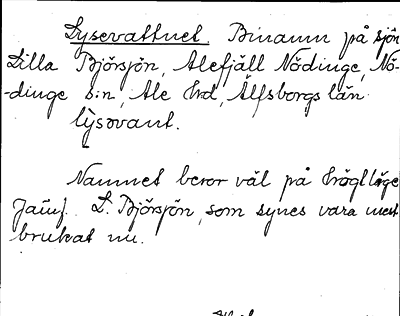 Lysevattnet. Binamn på sjön
Lilla Björsjön, Alefjäll Nödinge, Nö-
-dinge s:n, Ale hd, Älfsborgs län
lysəvant.
Namnet beror väl på högt läge
Jämf. L. Björsjön, som synes vara mest
brukat nu.